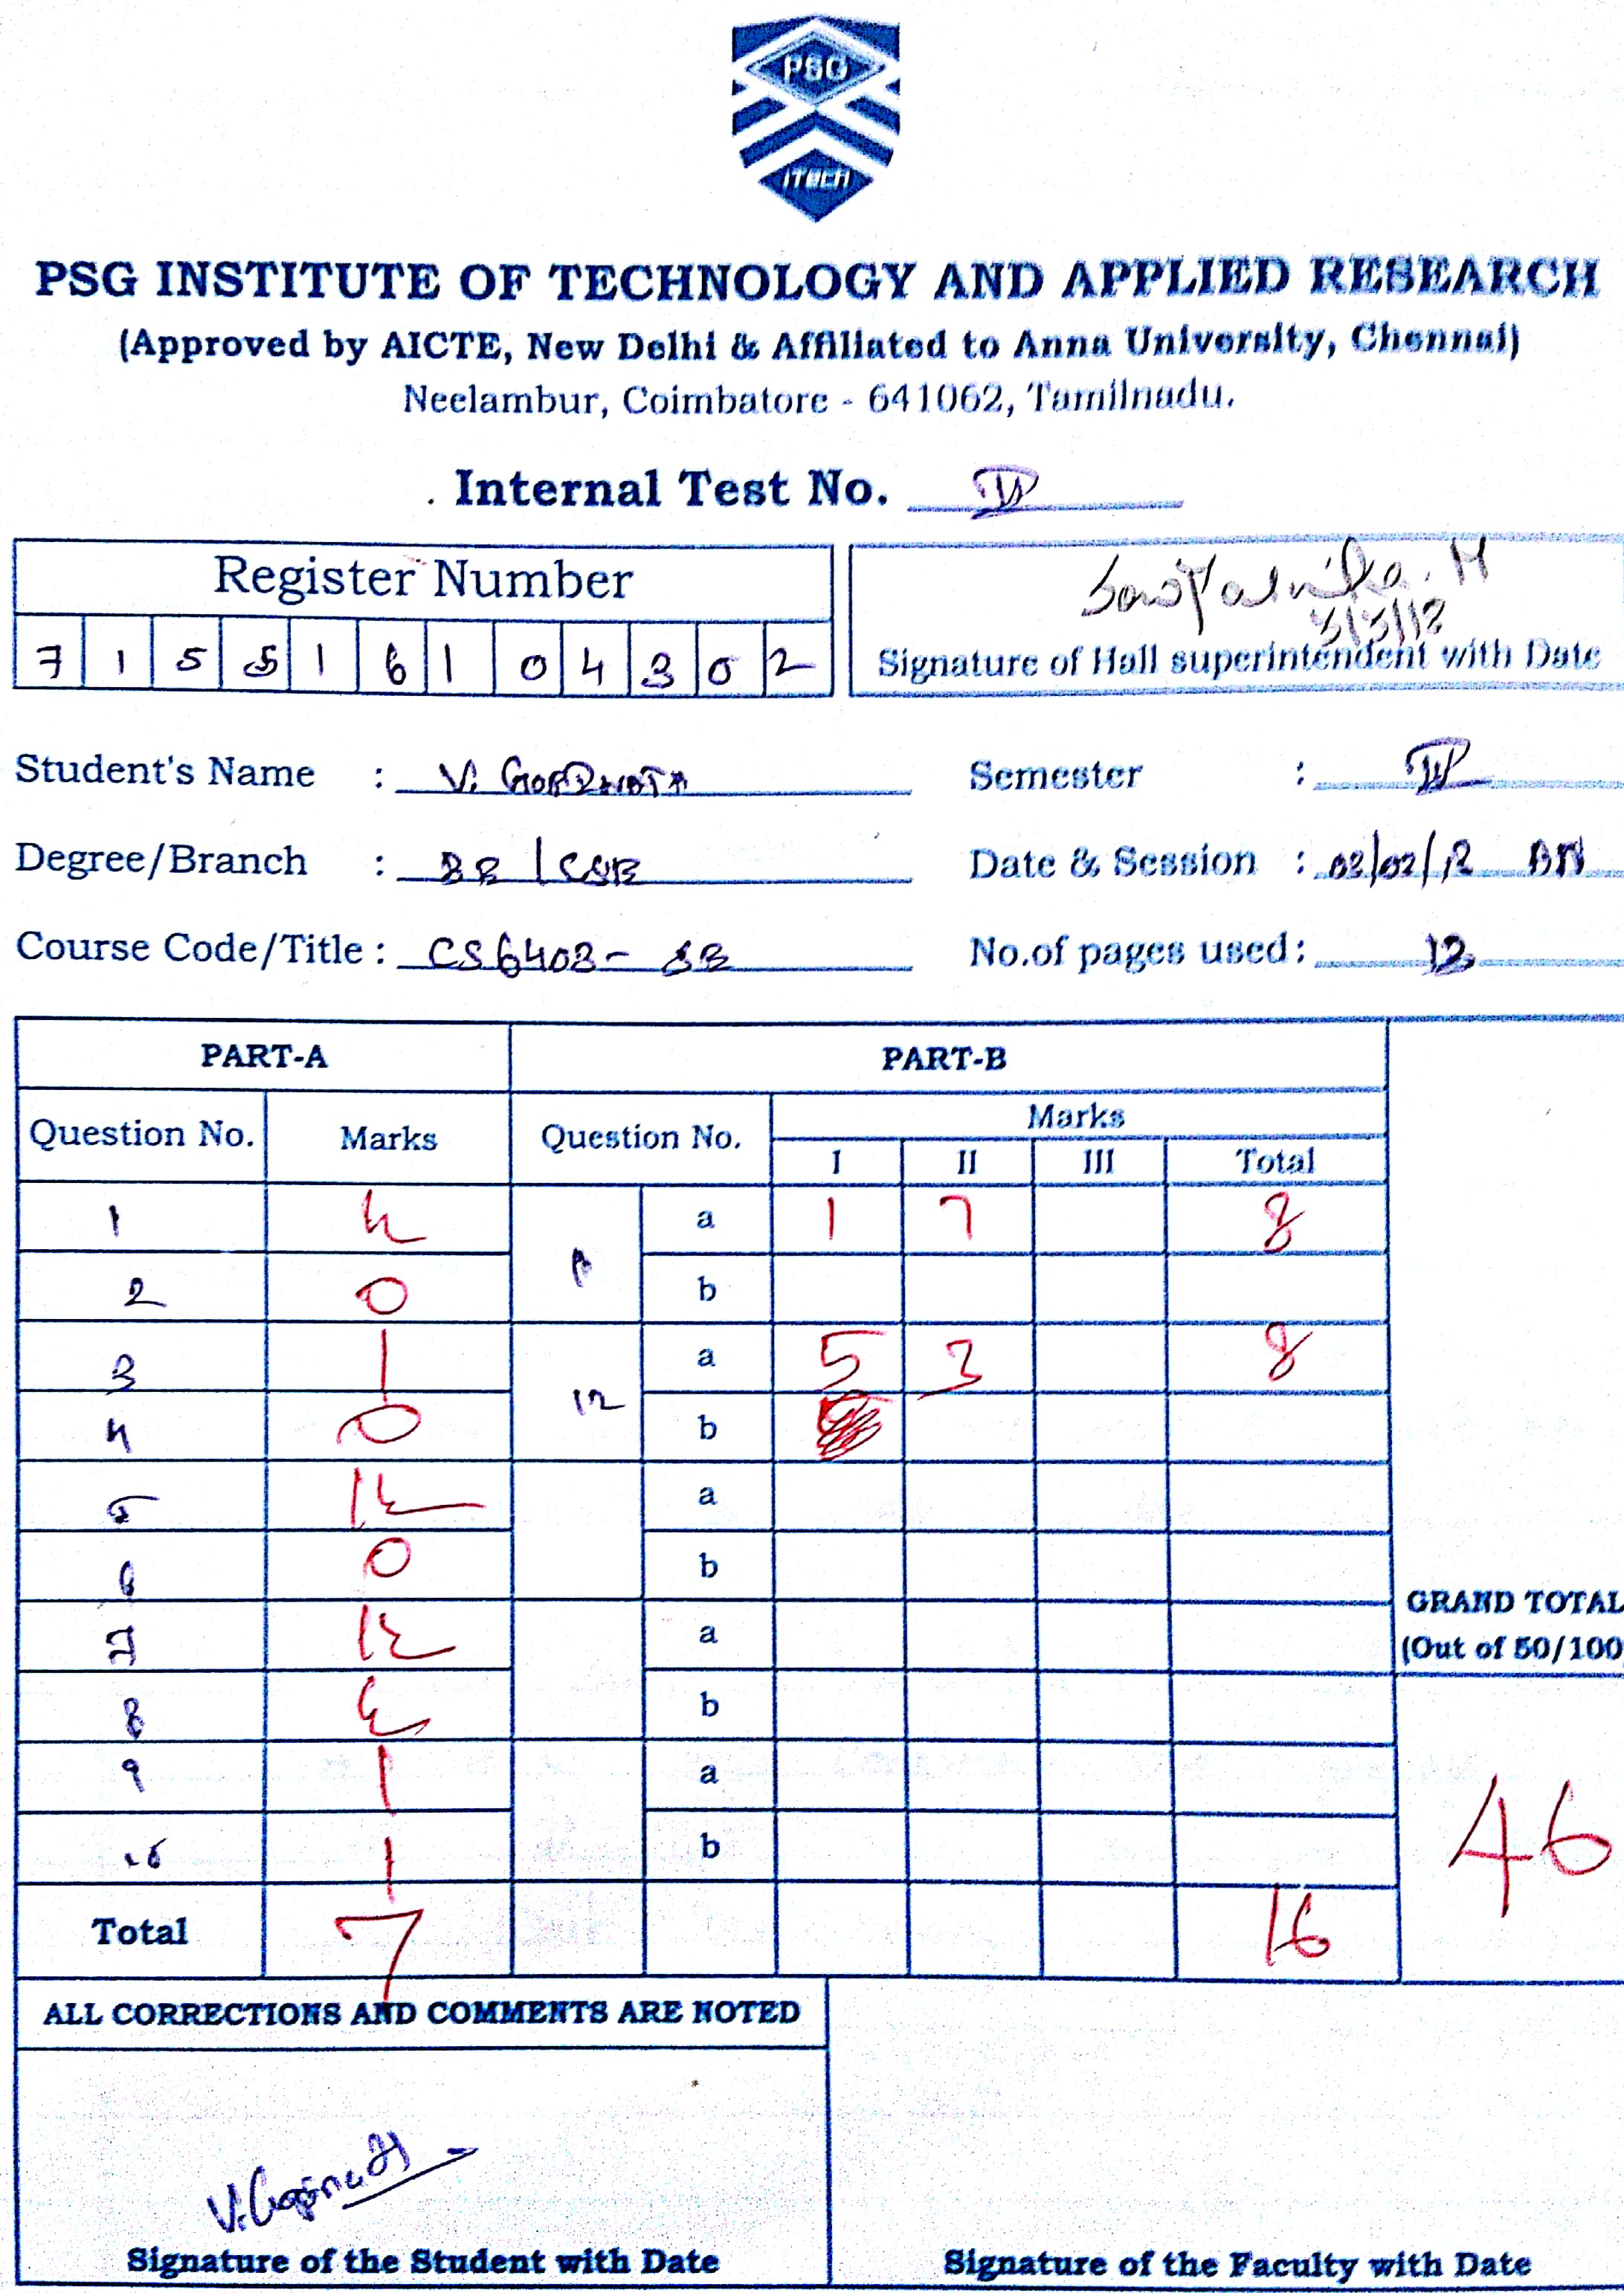 PSG
iTECH
PSG INSTITUTE OF TECHNOLOGY AND APPLIED RESEARCH
(Approved by AICTE, New Delhi & Affiliated to Anna University, Chennai)
Neelambur, Coimbatore - 641062, Tamilnadu.
Internal Test No.
Register Number
7 1 5 5 1 6 1 0 4 3 0 2
Signature of Hall superintendent with Date
Student's Name :
Semester : IV
Degree/Branch : BE / CSE
Date & Session :
Course Code/Title : CS6403 - SE
No.of pages used : 12
PART-A PART-B
Question No. Marks Question No. Marks
I II III Total
1 a 1 7 8
2 0 b
3 1 12 a 5 3 8
4 0 b
5 a
6 0 b
7 a
8 b
9 1 a
10 1 b
GRAND TOTAL
(Out of 50/100
46
Total 7 16
ALL CORRECTIONS AND COMMENTS ARE NOTED
V. Gopinath
Signature of the Student with Date
Signature of the Faculty with Date